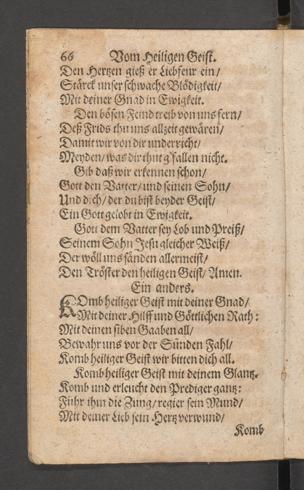 66 Vom Heiligen Geist.
Den Hertzen gieß er Liebfeur ein/
Stärck unser schwache Blödigkeit/
Mit deiner Gnad in Ewigkeit.
Den bösen Feind treib von uns fern/
Deß Frids thu uns allzeit gewären/
Damit wir von dir underricht/
Meyden/ was dir thut g'fallen nicht.
Gib daß wir erkennen schon/
Gott den Vatter/ und seinen Sohn/
Und dich/ der du bist beyder Geist/
Ein Gott gelobt in Ewigkeit.
Gott dem Vatter sey Lob und Preiß/
Seinem Sohn Jesu gleicher Weiß/
Der wöll uns sänden allermeist/
Den Tröster den heiligen Geist/ Amen.
Ein anders.
KOmb heiliger Geist mit deiner Gnad/
Mit deiner Hilff und Göttlichen Rath:
Mit deinen siben Gaaben all/
Bewahr uns vor der Sünden Fahl/
Komb heiliger Geist wir bitten dich all.
Komb heiliger Geist mit deinem Glantz.
Komb und erleucht den Prediger gantz:
Führ ihm die Zung/ regier sein Mund/
Mit deiner Lieb sein Hertz verwund/
Komb